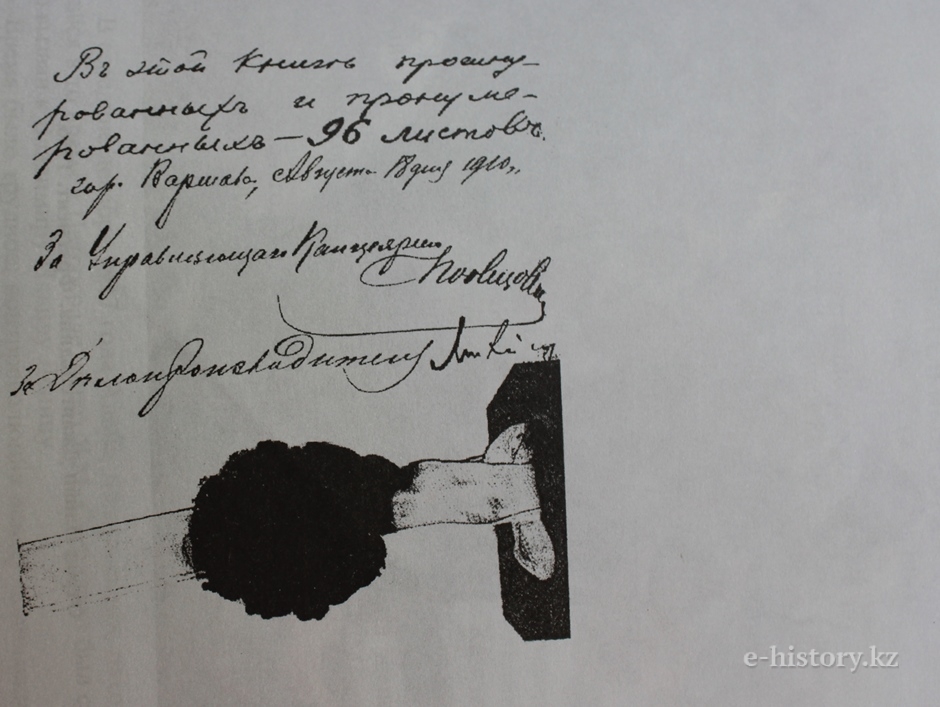 Въ этой книгѣ прошну-
рованныхъ и пронуме-
рованныхъ — 96 листовъ.
гор. Варшава, Августа 18 дня 1910 г.
За Управляющаго Канцеляріею
За Дѣлопроизводителя
e-history.kz